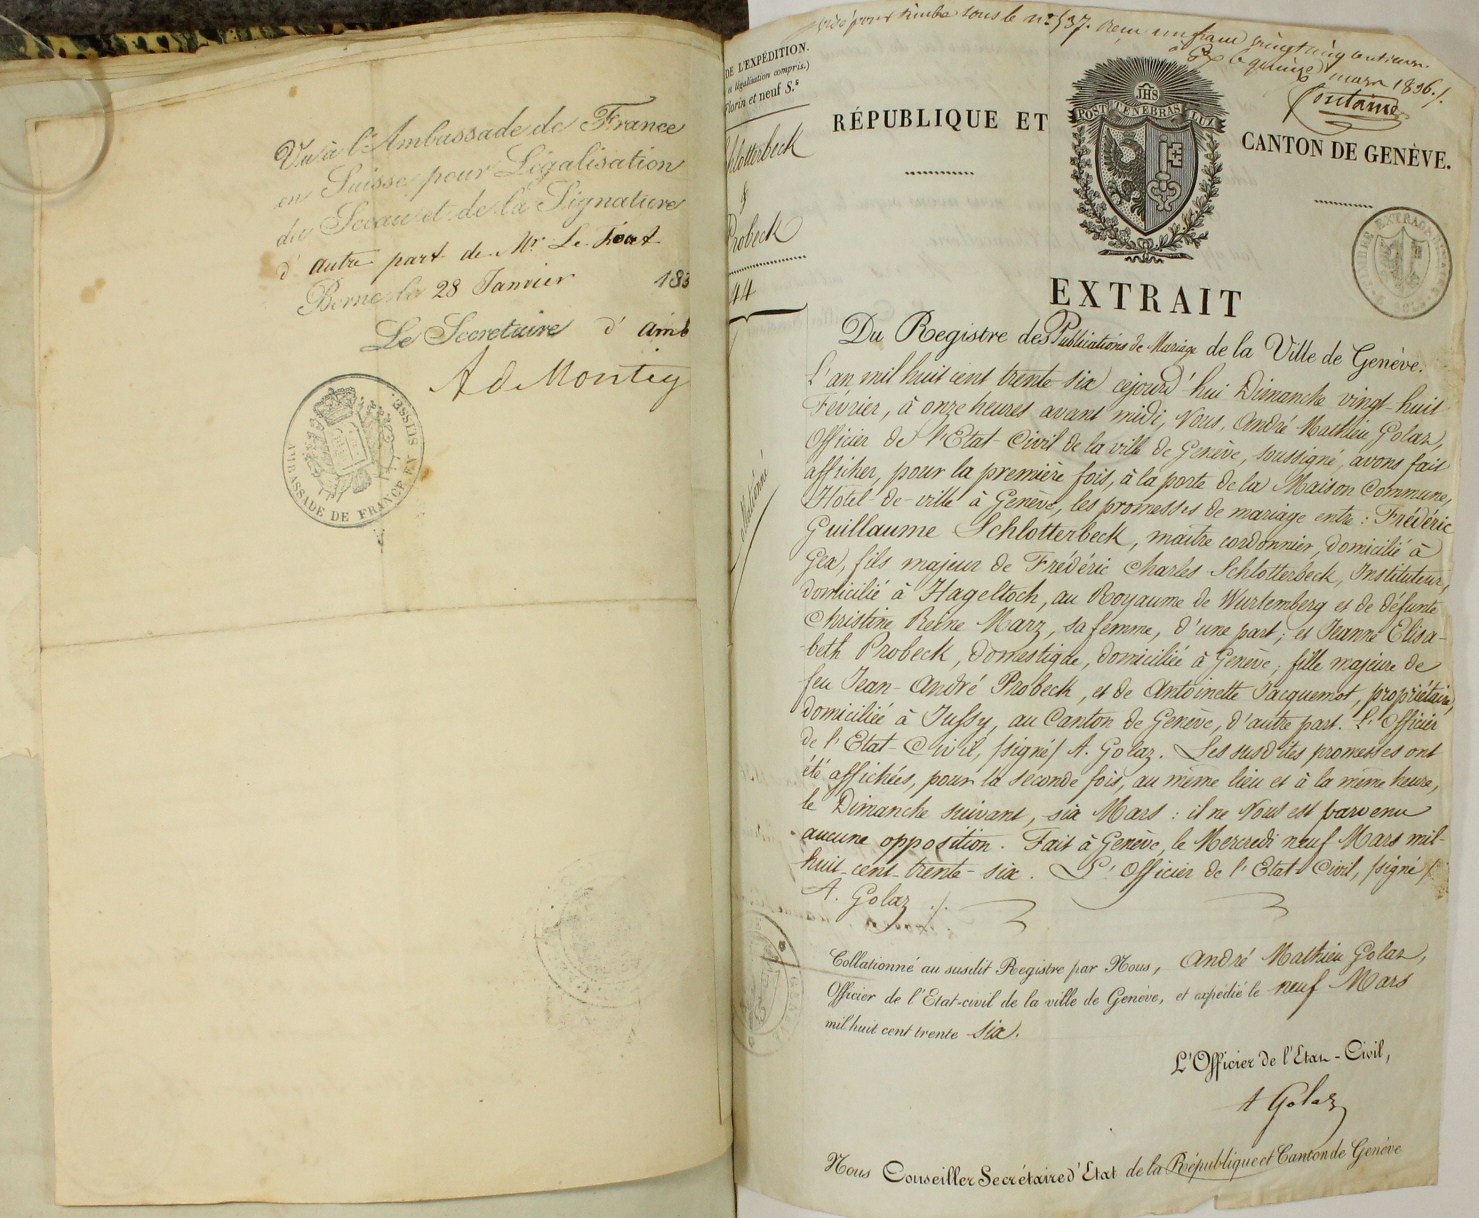 Vu à l'Ambassade de France
en Suisse pour Légalisation
du Sceau et de la Signature
d'autre part de Mr. Le
Berne le 28 Janvier 183
Le Secretaire d'amb
A de Montig
AMBASSADE DE FRANCE EN SUISSE.
pour timbre sous le no. 537. reçu un franc vingt cinq centimes.
à Gex le quinze mars 1836 ./.
DE L'EXPÉDITION.
et légalisation compris.)
florin et neuf S.s
chlotterbeck
&
Probeck
44
collationné
RÉPUBLIQUE ET
JHS
POST TENEBRAS LUX
CANTON DE GENÈVE.
EXTRAIT
Du Registre des Publications de Mariage de la Ville de Genève.
L'an mil huit cent trente six cejourd'hui Dimanche vingt-huit
Février, à onze heures avant midi, Nous, André Mathieu Golaz,
Officier de l'Etat-Civil de la ville de Genève, soussigné, avons fait
afficher, pour la première fois, à la porte de la Maison Commune,
Hôtel-de-ville à Genève, les promesses de mariage entre : Frédéric
Guillaume Schlotterbeck, maitre cordonnier, domicilié à
Gex, fils majeur de Frédéric Charles Schlotterbeck, Instituteur,
domicilié à Hageltoch, au Royaume de Wurtemberg et de défunte
Christine Reine Marz, sa femme, d'une part ; et Jeanne Elisa-
-beth Probeck, domestique, domiciliée à Genève ; fille majeure de
feu Jean-André Probeck, et de Antoinette Jacquemot, propriétaire,
domiciliée à Jussy, au Canton de Genève, d'autre part. L'Officier
de l'Etat-Civil, /signé/ A. Golaz. Les susdites promesses ont
été affichées, pour la seconde fois, au même lieu et à la même heure,
le Dimanche suivant, six Mars : il ne Nous est parvenu
aucune opposition. Fait à Genève, le Mercredi neuf Mars mil-
huit-cent-trente-six. L'Officier de l'Etat-Civil, /signé/
A. Golaz ./.
Collationné au susdit Registre par Nous, André Mathieu Golaz,
Officier de l'Etat-civil de la ville de Genève, et expédié le neuf Mars
mil huit cent trente six.
L'Officier de l'Etat-Civil,
A Golaz
Nous Conseiller Secrétaire d'Etat de la République et Canton de Genève